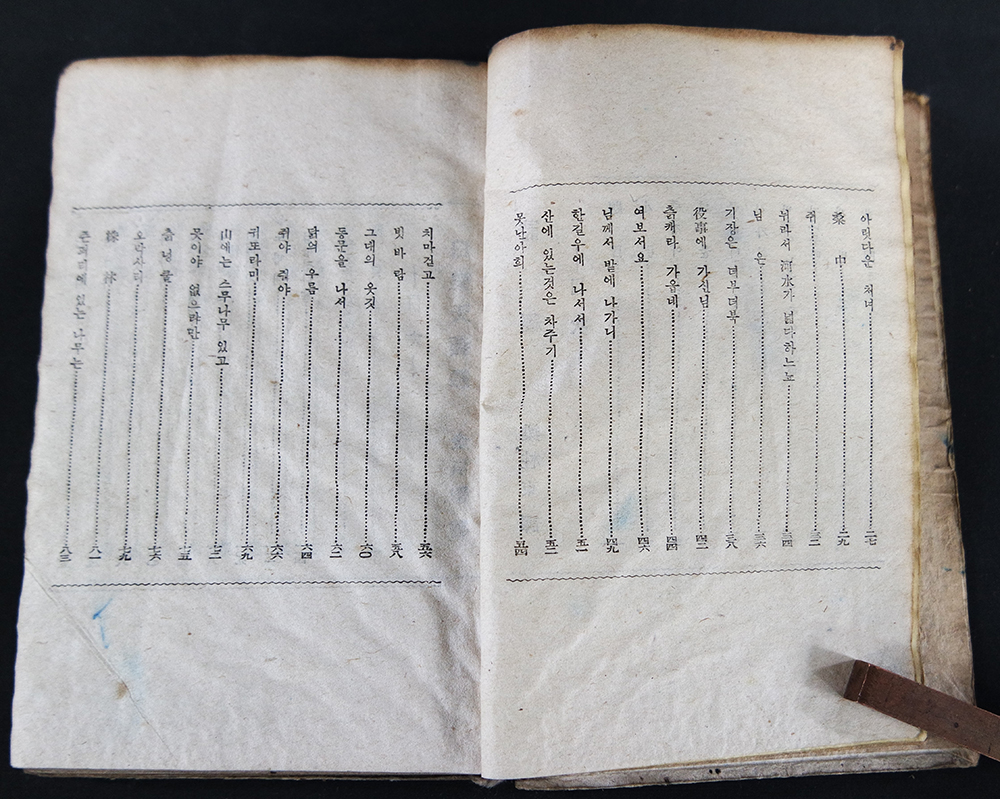 아릿다운 처녀 二七
巾 二九
쥐 三二
뉘라서 河水가 넓다하느뇨 三四
님은 三六
기장은 더부더북 三八
役事에 가신님 四二
츩캐라 가읍네 四四
여보서요 四六
님께서 밭에 나가니 四九
한길우에 나서서 五一
산에 있는것은 차주기 五二
못난아희 五四
치마걷고 五六
빗바람 五八
그대의 옷깃 六〇
동문을 나서 六二
닭의 우름 六四
쥐야 쥐야 六六
귀또라미 六九
山에는 스무나무 있고 七二
옷이야 없으랴만 七五
츩넝쿨 七六
七九
株林 八一
있는 나무는 八三